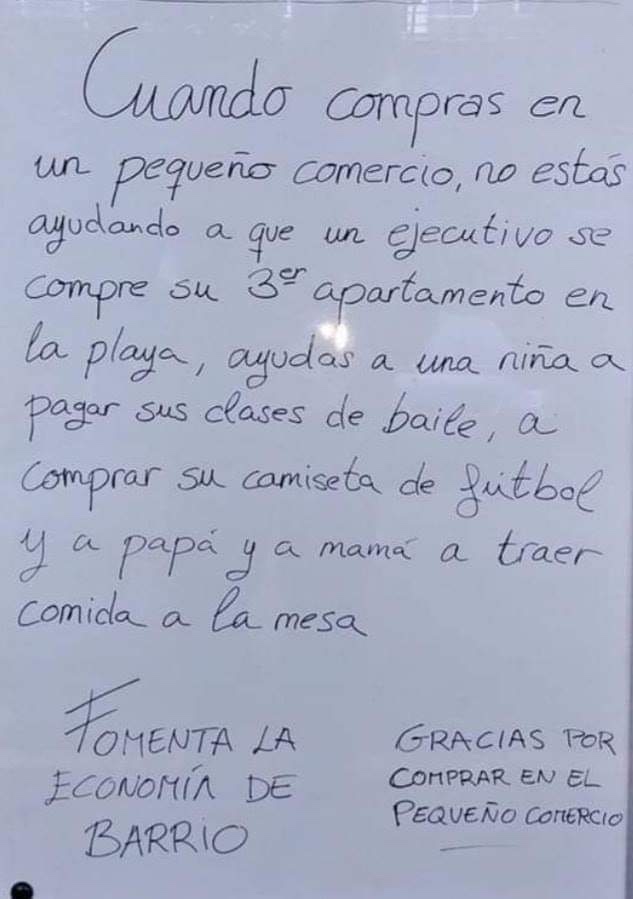 Cuando compras en
un pequeño comercio, no estás
ayudando a que un ejecutivo se
compre su 3er apartamento en
la playa, ayudas a una niña a
pagar sus clases de baile, a
comprar su camiseta de fútbol
y a papá y a mamá a traer
comida a la mesa
FOMENTA LA
ECONOMÍA DE
BARRIO
GRACIAS POR
COMPRAR EN EL
PEQUEÑO COMERCIO